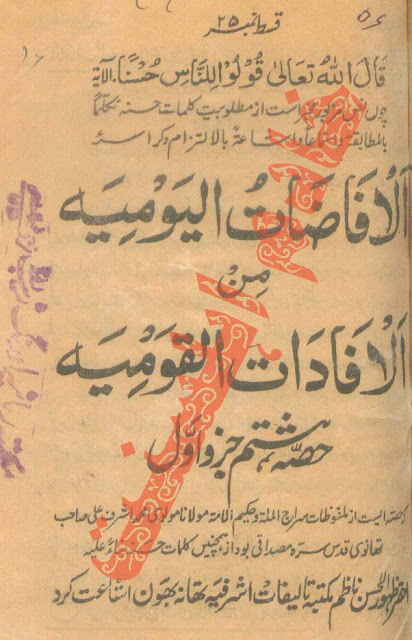 قسط نمبر ۲۵
قَالَ اللهُ تَعَالیٰ قُوْلُوْا لِلنَّاسِ حُسْنًا۔ الآیۃ
است از مطلوبیت کلمات حسنہ تکلماً
بالمطابقۃ بالالتزام دگر است
اَلْاِفَاضَاتُ الْیَوْمِیَہ
مِنْ
اَلْاِفَادَاتِ الْقَوْمِیَہ
حصّہ ہشتم جزو اوّل
کہ حصہ ایست از ملفوظات سراج الملۃ و حکیم الامۃ مولانا مولوی محمد اشرف علی صاحب
تھانوی قدس سرہ مصداقی بود از ہمچنیں کلمات علیہ
احقر ظہور الحسن ناظم مکتبۃ تالیفات اشرفیہ تھانہ بھون اشاعت کرد